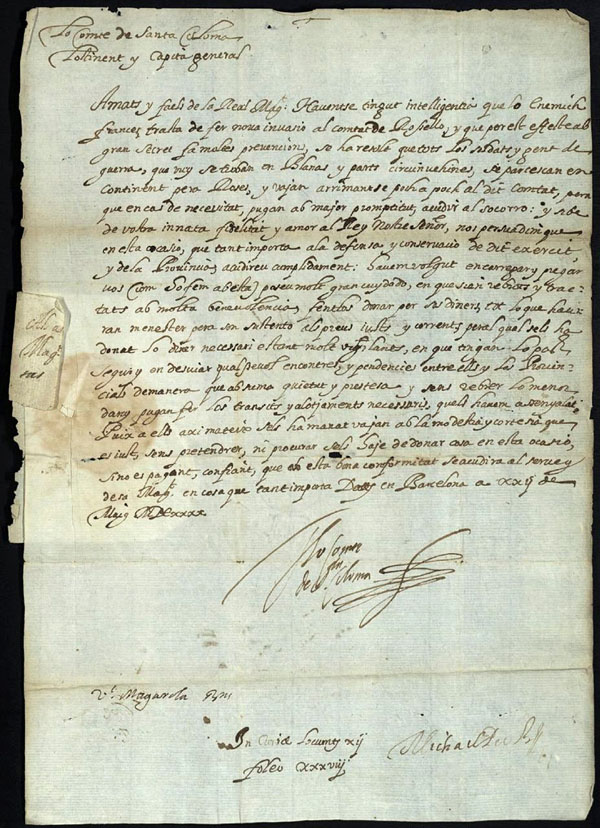 Lo Comte de Santa Coloma
Lochtinent y Capita general
Amats y faels de la Real Mag.t Haventse tingut intelligentia que lo Enemich
frances tracta de fer nova invasio al comtat de Rossello, y que per est effecte ab
gran secret fa males prevencions, se ha resolt que tots los soldats y gent de
guerra, que vuy se troban en Blanas y parts circunvehines, se partescan en
continent pera Roses, y vajan arrimantse poch a poch al dit Comtat, pera
que en cas de necessitat, pugan ab major promptitut acudir al socorro: y
de vostra innata fidelitat y amor al Rey Nostre Señor, nos persuadim que
en esta ocasio, que tant importa a la defensa y conservacio de dit exercit
y de la Provincia acudireu cumplidament: havem volgut encarregar y pregar
vos (com so fem ab esta) poseu molt gran cuydado, en que sian rebuts y trac
tats ab molta benevolencia, fentlos donar per sos diners tot lo que hau
ran menester para son sustento als preus justs y corrents, pera lo qual sels ha
donat lo diner necessari estant molt vigilants, en que tingan lo pas
segur y en desviar qualsevol encontres, y pendencies entre ells y la Provin
cials de manera que ab summa quietut y prestesa y sens rebrer lo menor
dany pugan fer los transits y alotjaments necessaris, quels havem asenyalat
Puix a ells aximateix sels ha manat vajan ab la modestia y cortesia que
es just, sens pretendrer, ni procurar sels haje de donar cosa en esta ocasio,
sino es pagant, confiant, que en esta bona conformitat se acudira al servey
de sa Mag.t en cosa que tant importa Datts en Barcelona a xxij de
Maig MDCxxxx
Lo Comte
de S.ta Coloma
V.t Magarola
In Curiæ Locumtis xij
foleo xxxviij
Michael